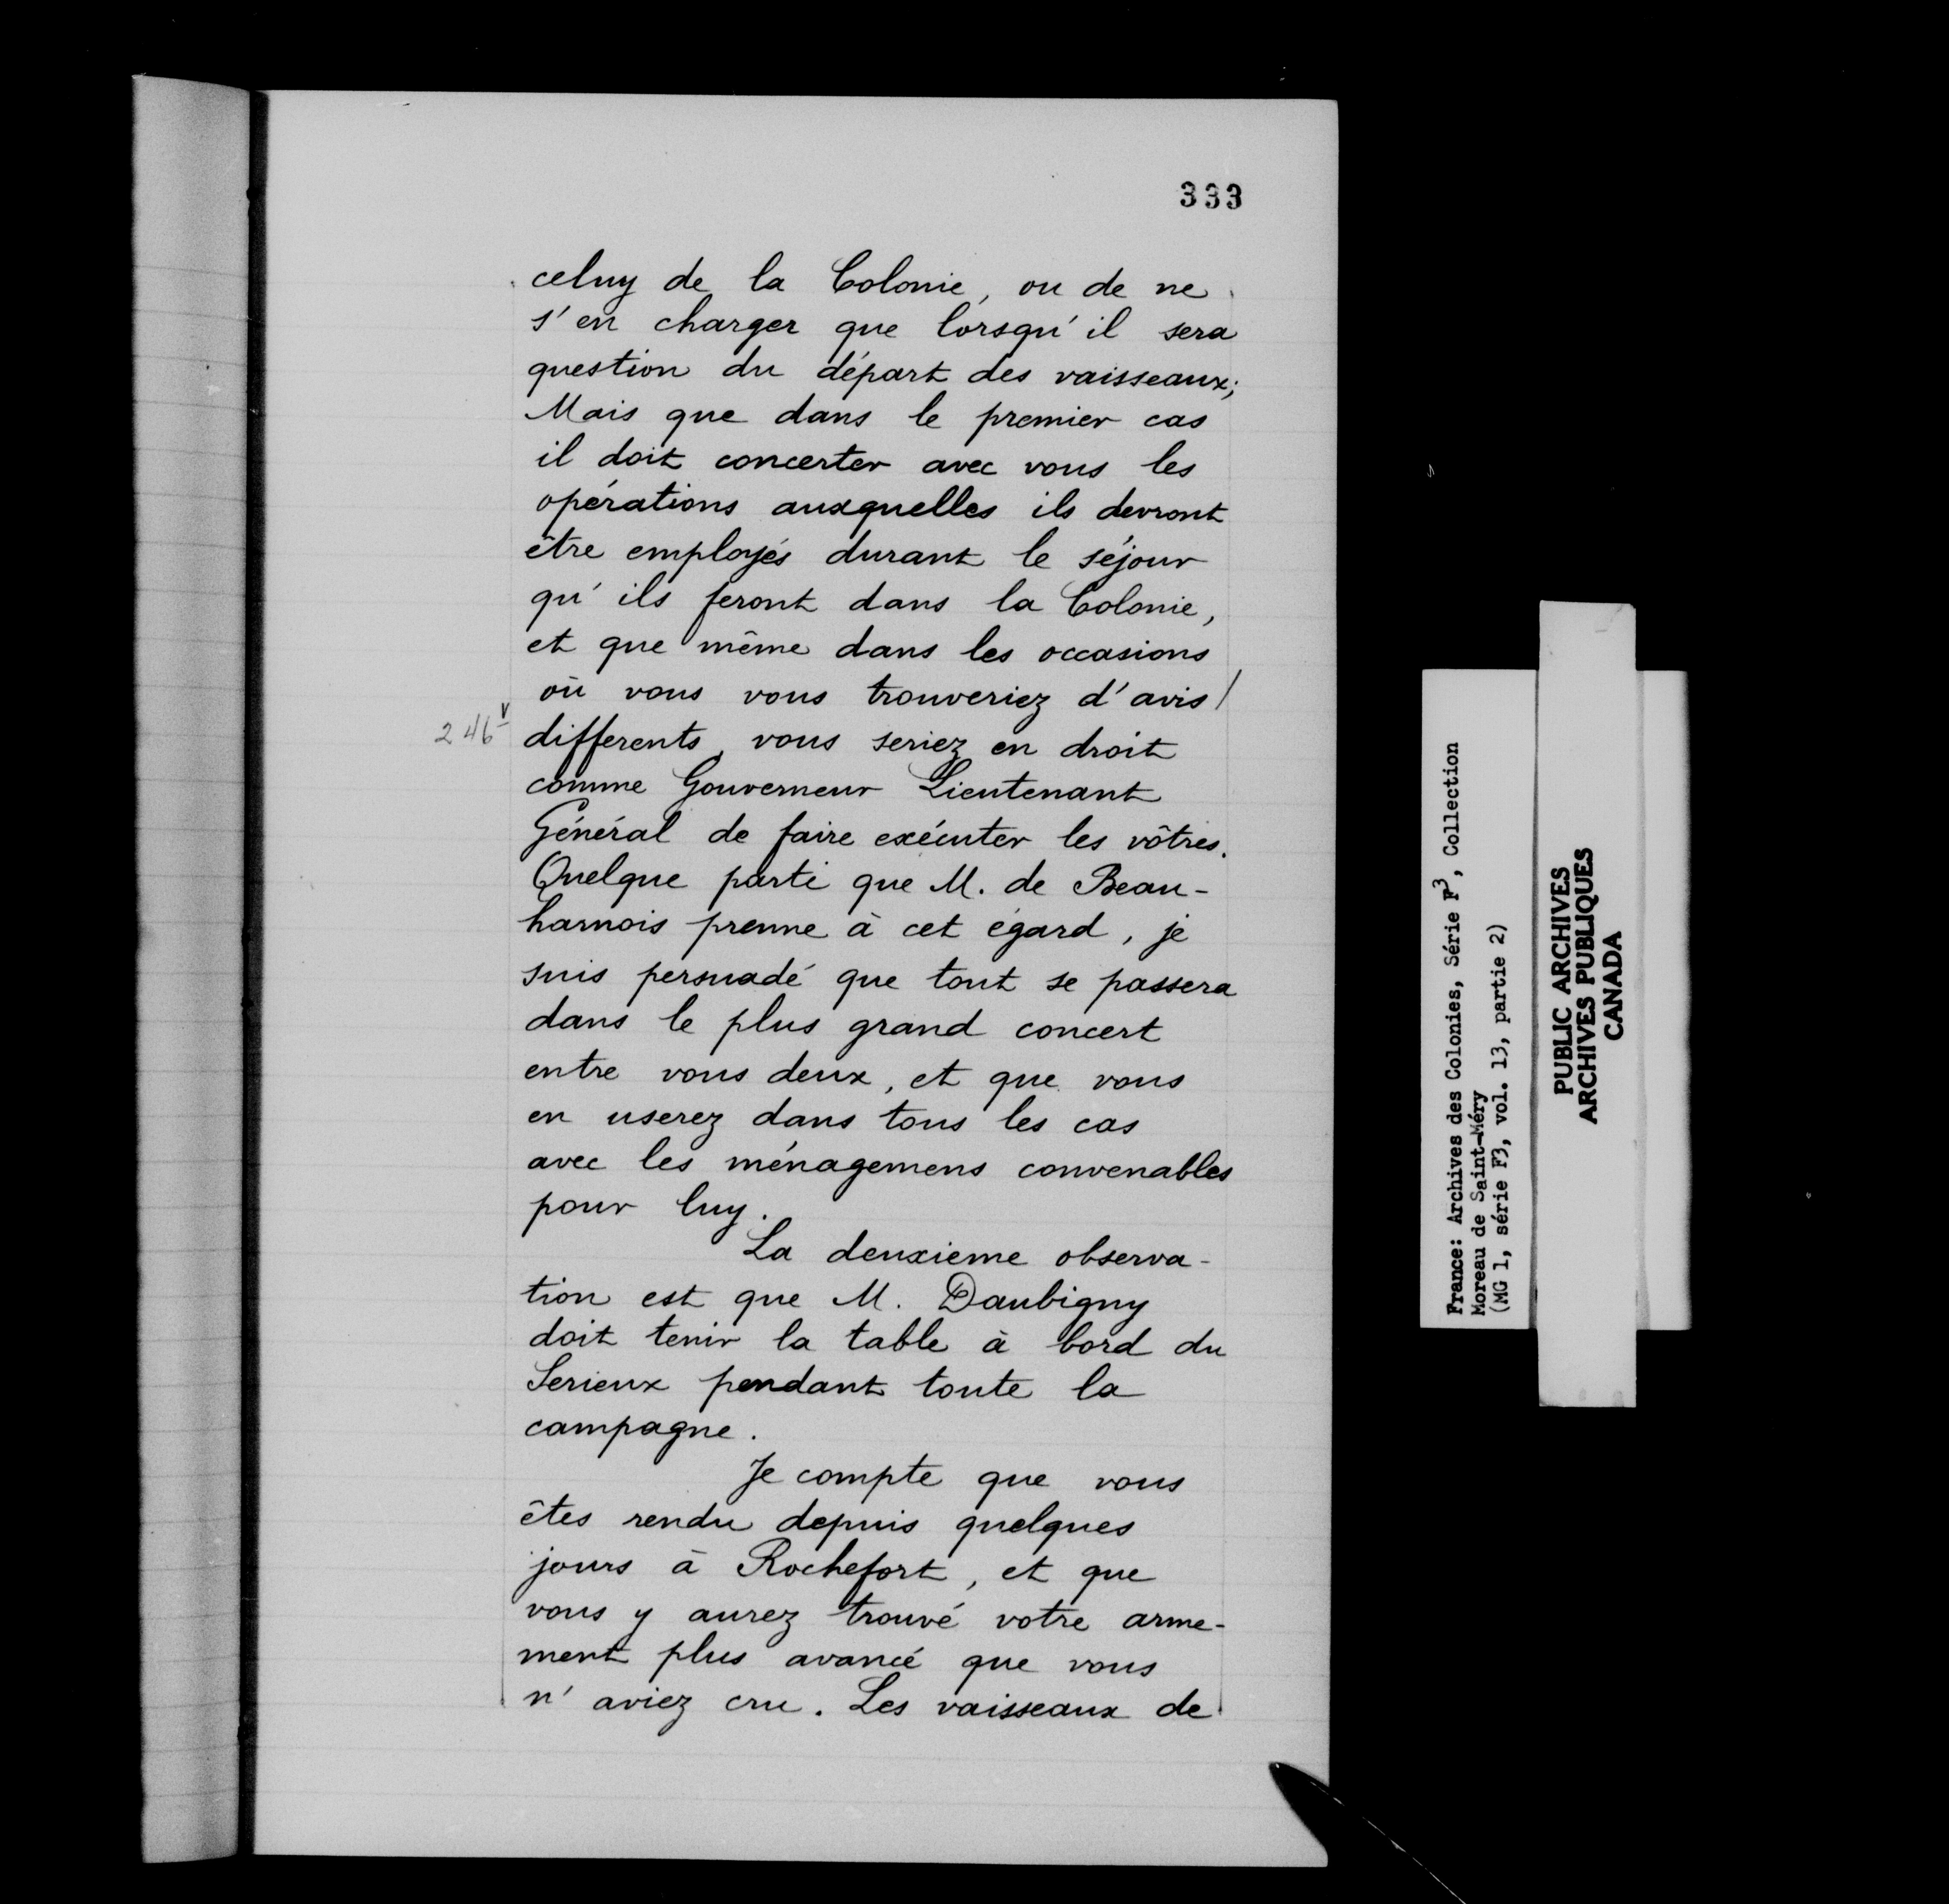 333
celuy de la Colonie, ou de ne
s'en charger que lorsqu'il sera
question du départ des vaisseaux;
Mais que dans le premier cas
il doit concerter avec vous les
opérations auxquelles ils devront
être employés durant le séjour
qu'ils feront dans la Colonie,
et que même dans les occasions
où vous vous trouveriez d'avis/
246v differents, vous seriez en droit
comme Gouverneur Lieutenant
Général de faire exécuter les vôtres.
Quelque parti que M. de Beau-
harnois prenne à cet égard, je
suis persuadé que tout se passera
dans le plus grand concert
entre vous deux, et que vous
en userez dans tous les cas
avec les ménagemens convenables
pour luy.
La deuxieme observa-
tion est que M. Daubigny
doit tenir la table à bord du
Serieux pendant toute la
campagne.
Je compte que vous
êtes rendu depuis quelques
jours à Rochefort, et que
vous y aurez trouvé votre arme-
ment plus avancé que vous
n'aviez cru. Les vaisseaux de
France: Archives des Colonies, Série F3, Collection
Moreau de Saint-Méry
(MG 1, série F3, vol. 13, partie 2)
PUBLIC ARCHIVES
ARCHIVES PUBLIQUES
CANADA